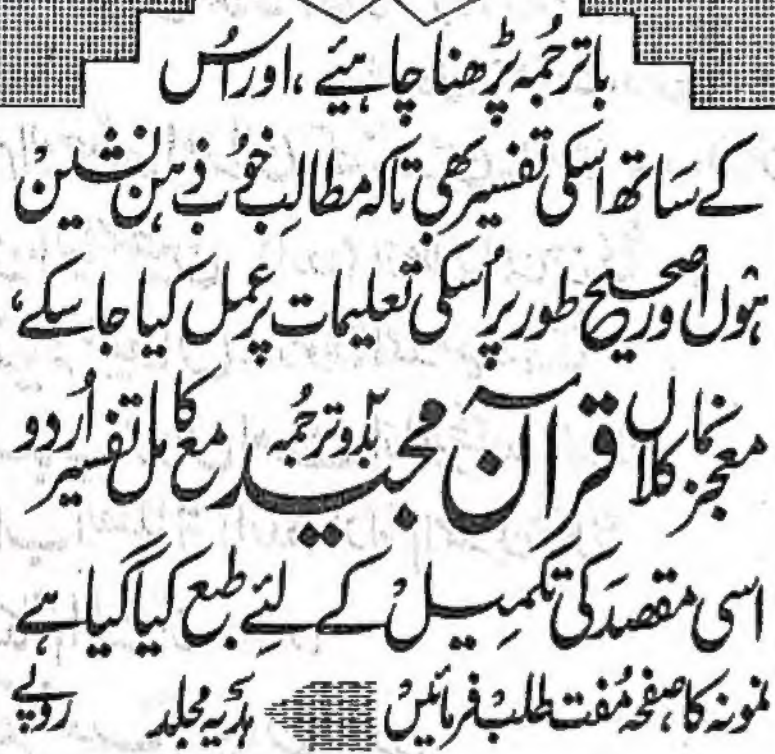 باترجُمہ پڑھنا چاہئیے ،اور اُس
کے سَاتھ اسکی تفسیر بھی تاکہ مطالِب خوُب ذہن نشین
ہوں اور صحیح طور پر اُسکی تعلیمات پر عمل کیا جا سکے،
معجز نما کلاں قرآن مجید بدٗو ترجُمہ مع کامل تفسیر اُردو
اسی مقصد کی تکمیل کے لئے طبع کیا گیا ہے
نمونہ کا صفحہ مُفت طلب فرمائیں ہدیہ مجلد روپے